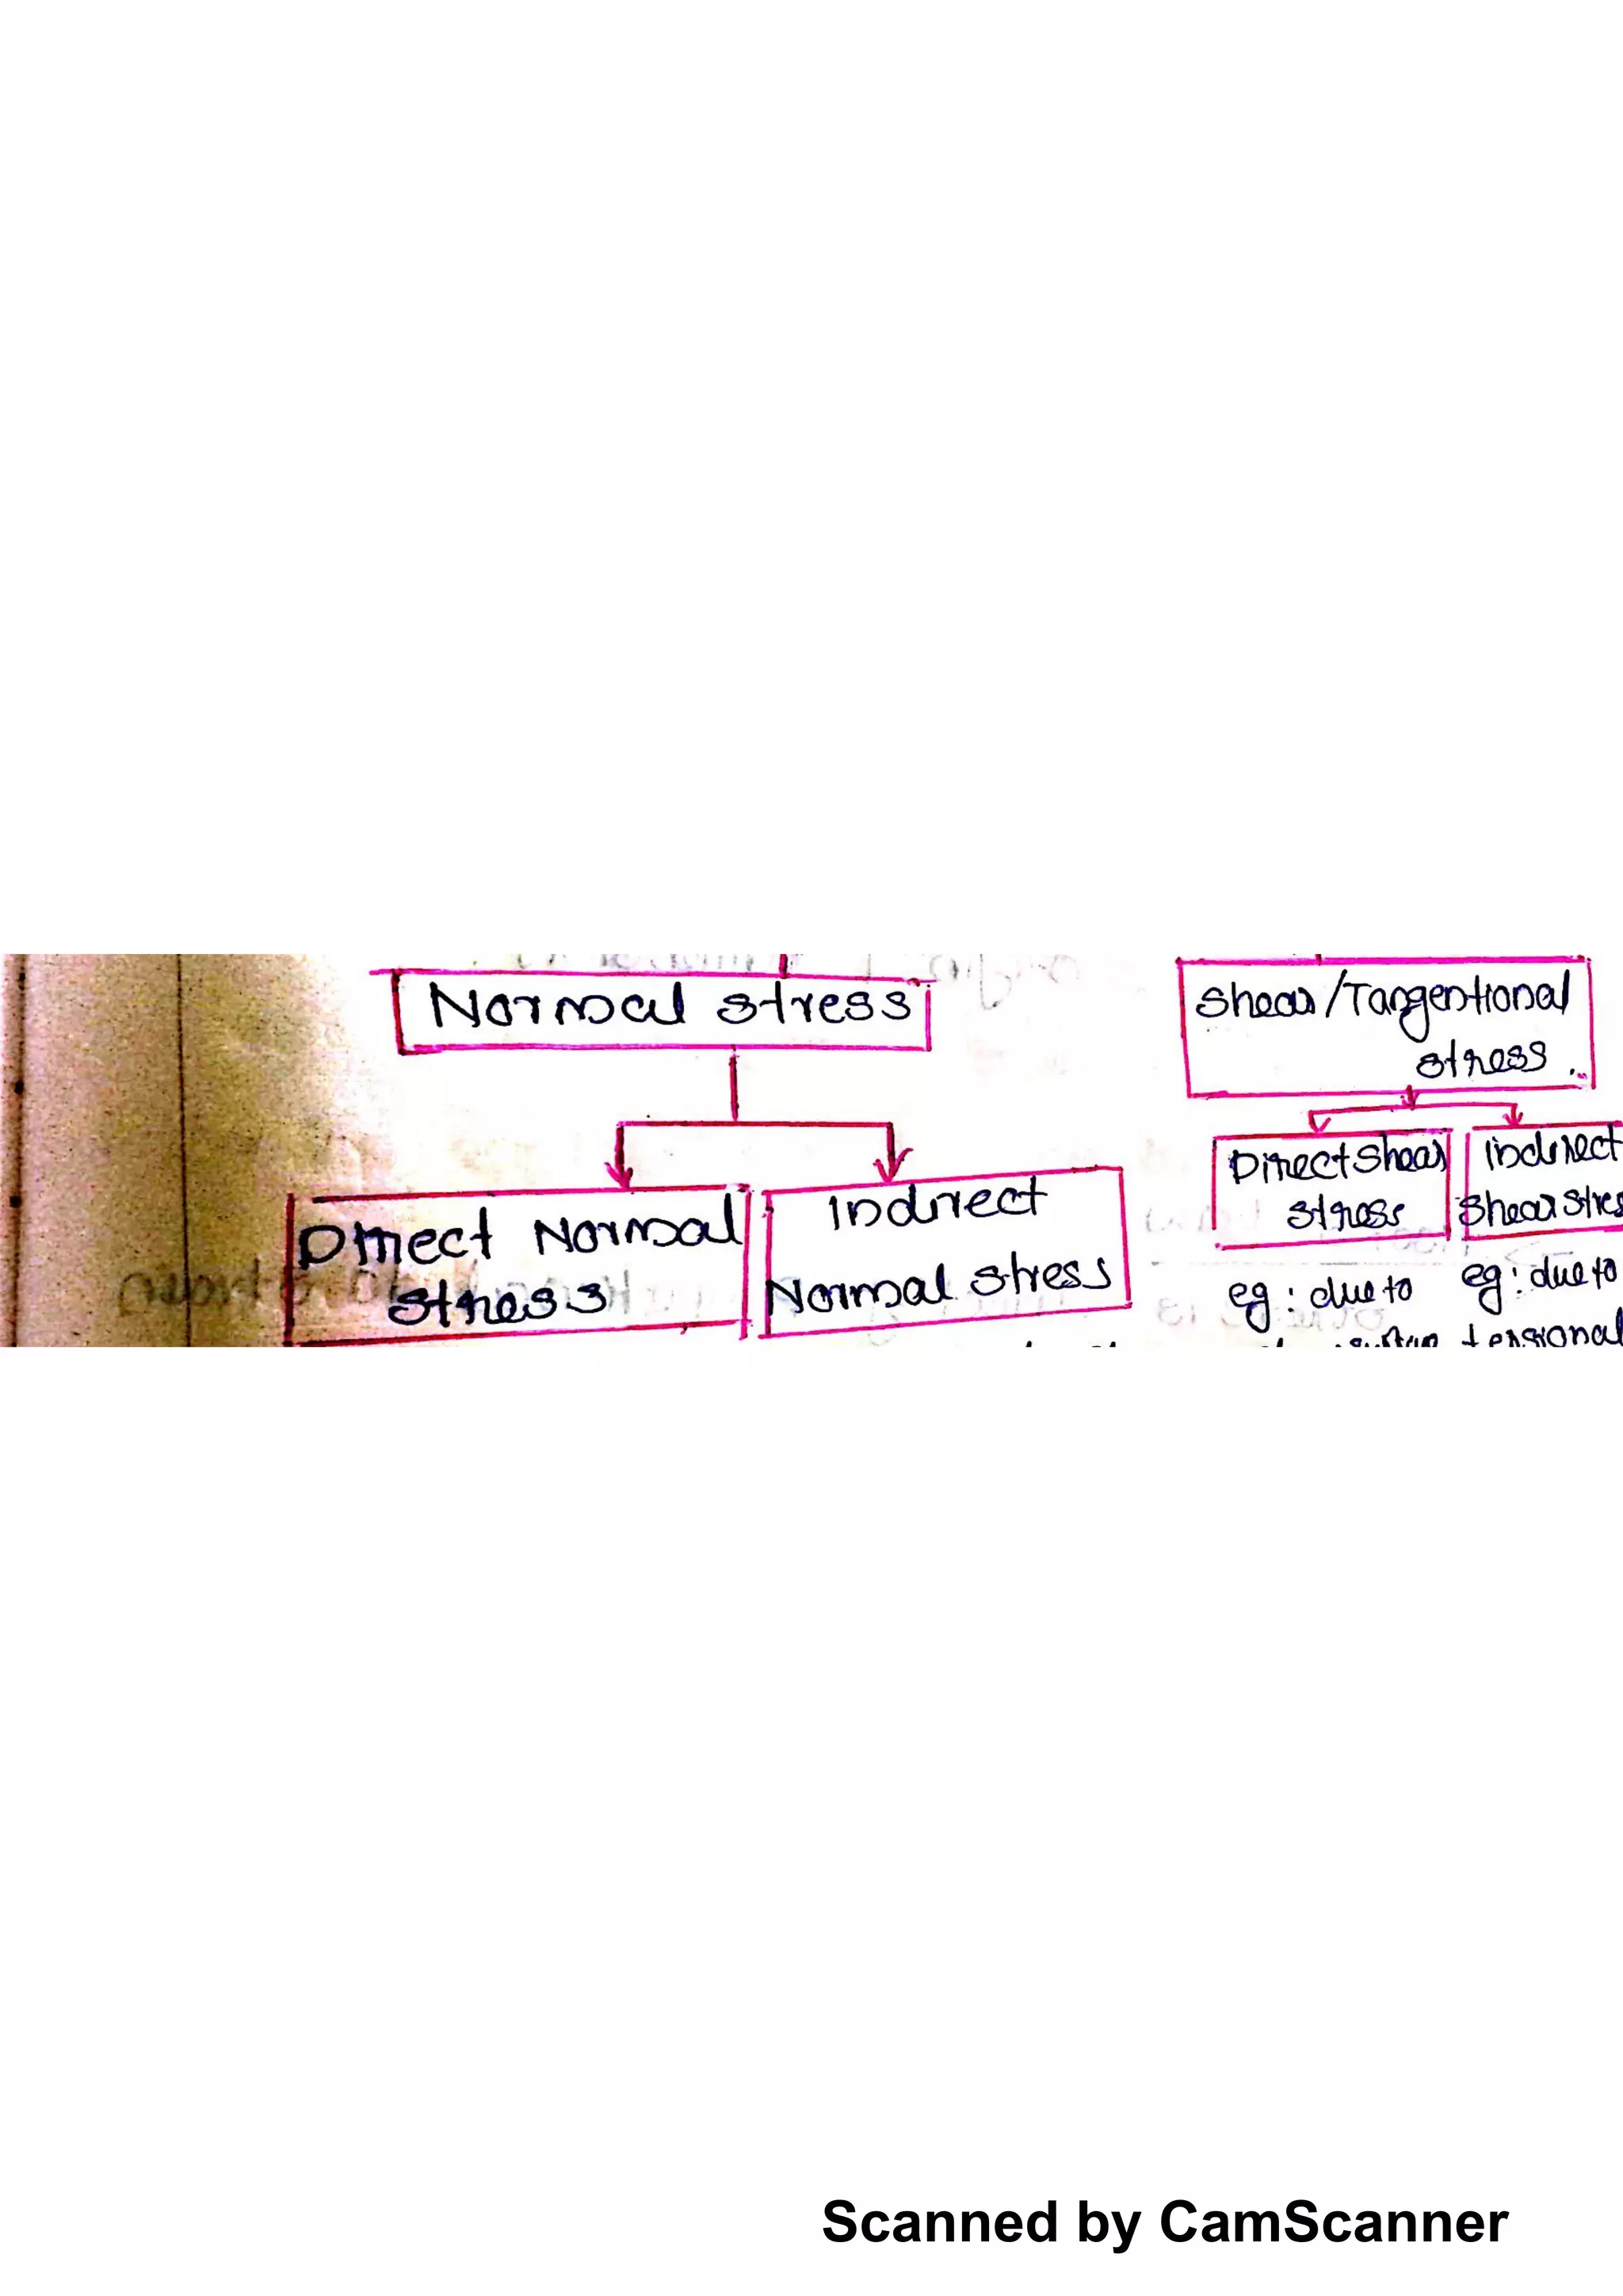 Normal stress
Shear/Tangentional
stress.
Direct Normal
stress
Indirect
Normal stress
Direct shear
stress
Indirect
shear stres
eg: due to
eg: due to
Scanned by CamScanner